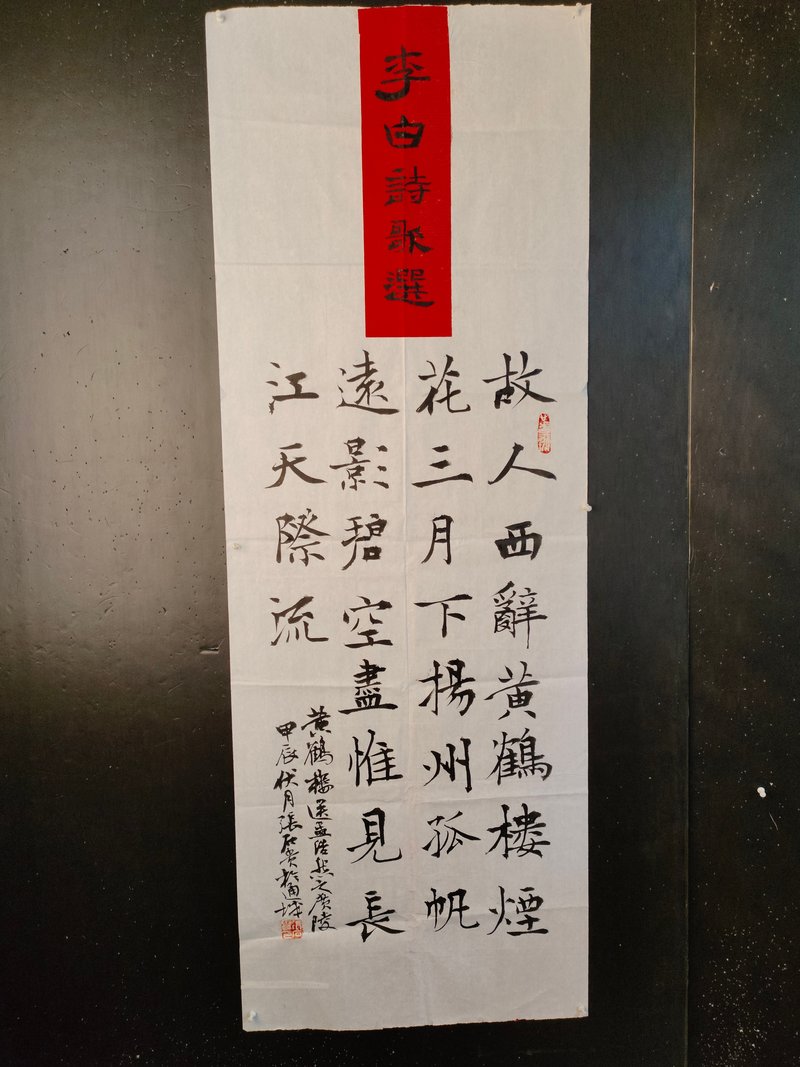 李白詩歌選
故人西辭黃鶴楼煙
花三月下楊州孤帆
遠影碧空盡惟見長
江天際流
黄鶴楼送孟浩然之廣陵
甲辰伏月張石贵於通城